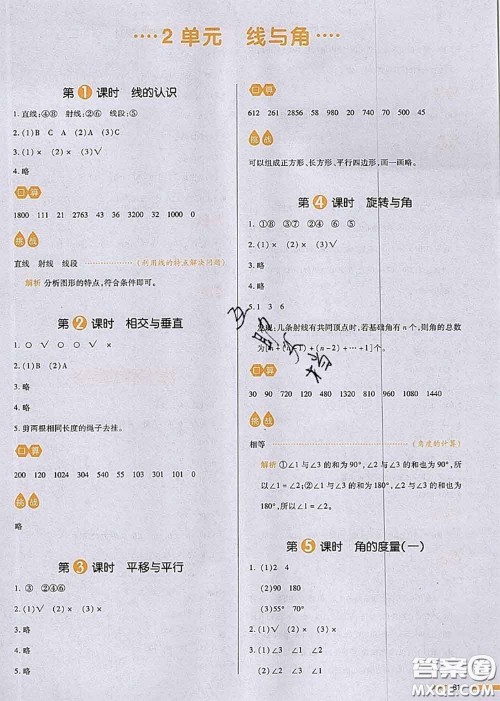 2 单元 线与角
第1课时 线的认识
1. 直线:④⑧ 射线:②⑥ 线段:⑤
2. (1)B C A (2)A (3)D
3. (1)× (2)× (3)√
4. 略
口算
1800 111 21 2763 43 36 3248 1000 0
挑战
直线 射线 线段 (利用线的特点解决问题)
解析 分析图形的特点,符合条件即可。
第2课时 相交与垂直
1. ○ √ ○ ○ √ ×
2. 略
3. (1)√ (2)× (3)√
4. 略
5. 剪两根相同长度的绳子去挂。
口算
200 120 101 224 1000 504 103 301 0
挑战
略
第3课时 平移与平行
1. ③ ②④⑥
2. (1)√ (2)× (3)×
3. 略
4. 略
5. 略
口算
612 261 2858 998 520 980 1200 500 45
挑战
可以组成正方形、长方形、平行四边形,画一画略。
第4课时 旋转与角
1. ①⑧ ③⑦ ② ④ ⑥ ⑤
2. (1)× (2)× (3)√
3. 略
4. 略
5. 1 3 6
发现:几条射线有共同顶点时,若基础角有n个,则角的总数
为[n+(n-1)+(n-2)+…+1]个。
口算
30 90 720 120 1000 150 320 190 440
挑战
相等 (角度的计算)
解析 ①∠1与∠3的和为90°,∠2与∠3的和为
90°,所以∠1=∠2。②∠1与∠3的和为180°,
∠2与∠3的和为180°,所以∠1=∠2。
第5课时 角的度量(一)
1. (1)2 54
(2)90 180
(3)55° 70°
2. (1)√ (2)× (3)× (4)×
3. 略
81
答案圈
MXQE.COM